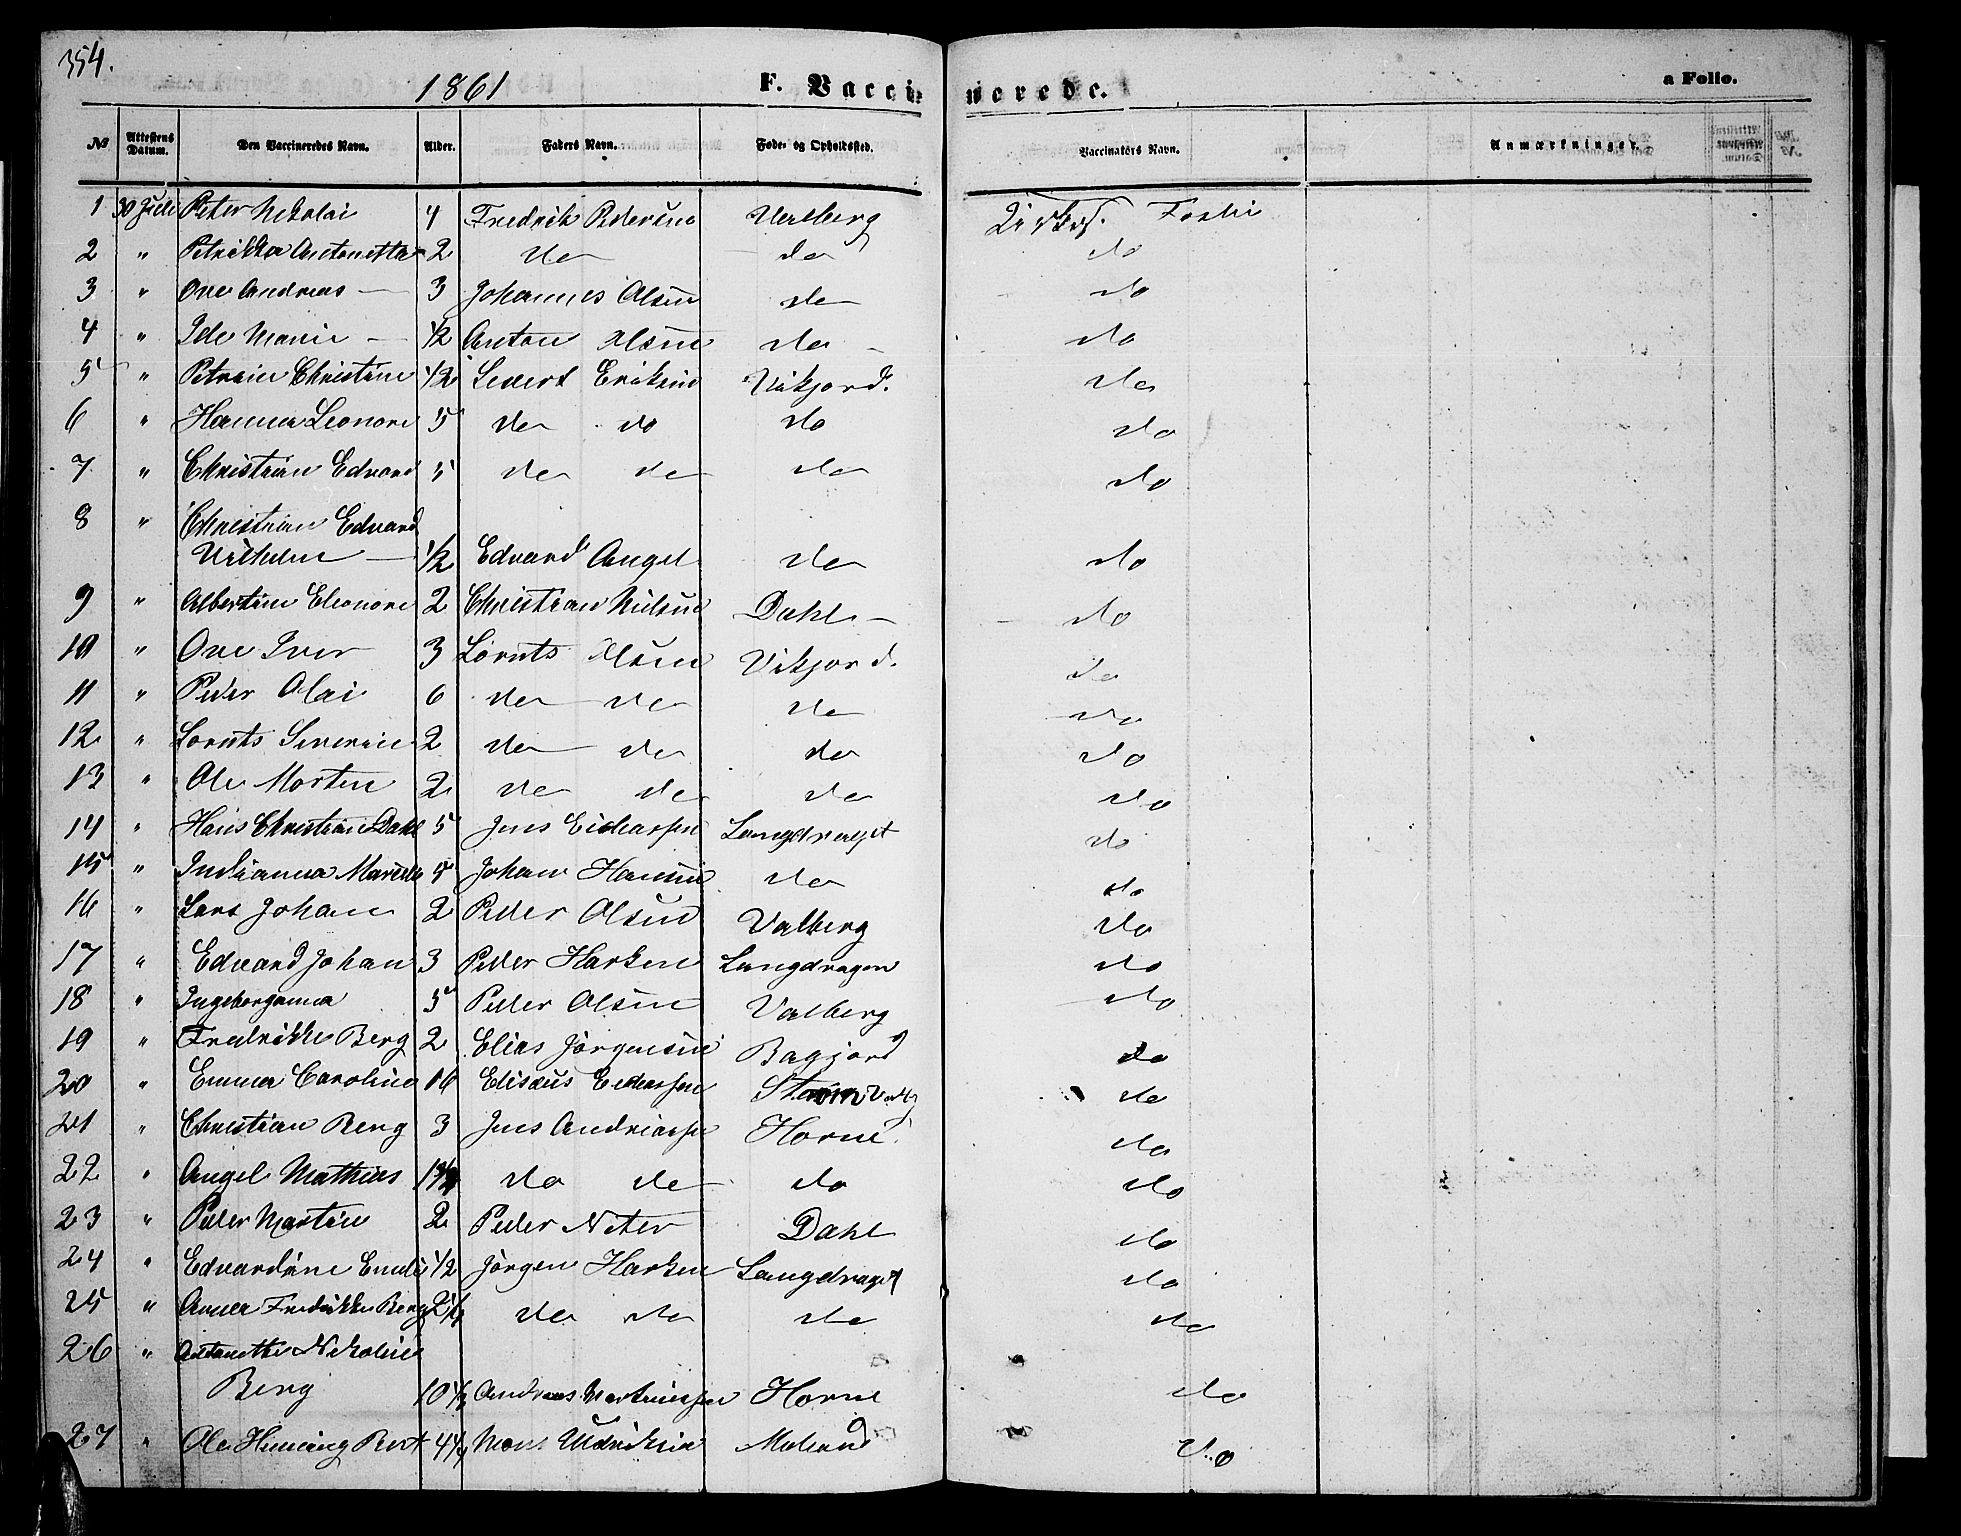 354.
1861 F. Vaccinerede. a Folio.
No Attestens Datum. Den Vaccineredes Navn. Alder. Faders Navn. Føde- og Opholdssted. Vaccinatørs Navn. Anmærkninger.
1 30 Juli Peter Nikolai 4 Fredrik Pedersen Valberg
2 " Petrikka Antonetta 2 do do do
3 " Ove Andreas — 3 Johannes Olsen do do
4 " Ide Marie — 1/2 Anton Olsen do - do
5 " Christine 1/2 Sivert Eriksen Vikjord. do
6 " Hanna Leonore 5 do do do do
7 " Christian Edvard 5 do do do do
8 " Christian Edvard
Vilhelm — 1/2 Edvard Angel do do
9 " Albertine Elenore 2 Christian Nilsen Dahl — do
10 " Ove Iver 3 Lornts Olsen Vikjord. do
11 " Peder Olai 6 do do do do
12 " Lornts Severin 2 do do do do
13 " Ole Morten 2 do do do do
14 " Hans Christian Dahl 5 Jens Langdraget do
15 " Julianna 5 Johan Hansen do do
16 " Lars Johan 2 Peder Olsen Valberg do
17 " Edvard Johan 3 Peder Harken Langdragen do
18 " Ingeborganna 5 Peder Olsen Valberg do
19 " Fredrikke Berg 2 Elias Jørgensen Bagjord do
20 " Emma Caroline 16 Elisæus do
21 " Christian Berg 3 Jens Andreassen Horne. do
22 " Angel Mathias do do do do
23 " Peder Martin 2 Peder Dahl do
24 " Edvardine Emilie 1/2 Jørgen Harken Langdraget do
25 " Anna Fredrikke Berg do do do do
26 " Antonette Nikoline
Berg 10 1/2 Andreas Martinussen Horne do
27 " Ole Henning do